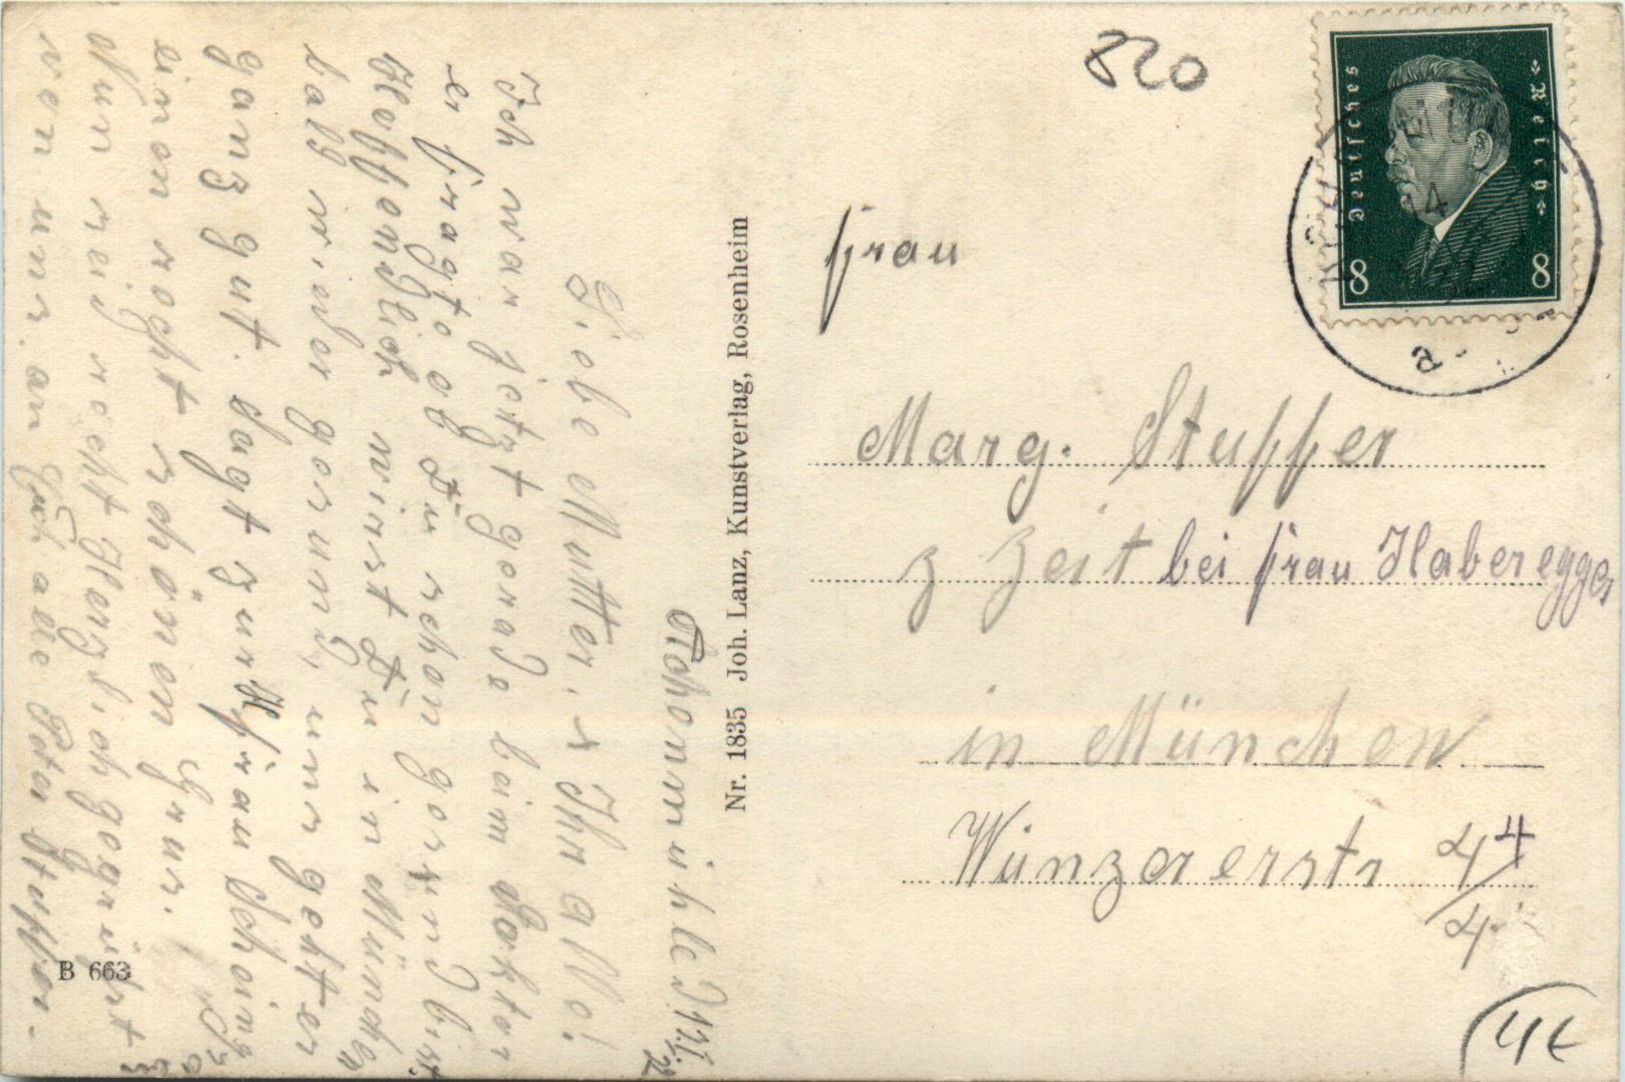 Liebe Mutter, u Ihr alle!
Ich war jetzt gerade beim Doktor
er fragte ob Du schon gesund bist.
Hoffendlich wirst Du in München
bald wieder gesund, uns geht es
ganz gut. Sagt zur Frau Schoing
einen recht schönen Grus.
Nun seid recht Herzlich gegrüst
von uns. an Euch alle Peter Stuffer.
Nr. 1835 Joh. Lanz, Kunstverlag, Rosenheim
B 663
820
Deutsches Reich
8 8
a
Frau
Marg. Stuffer
z Zeit bei Frau Haberegger
in München
Winzererstr 44
4
4 €